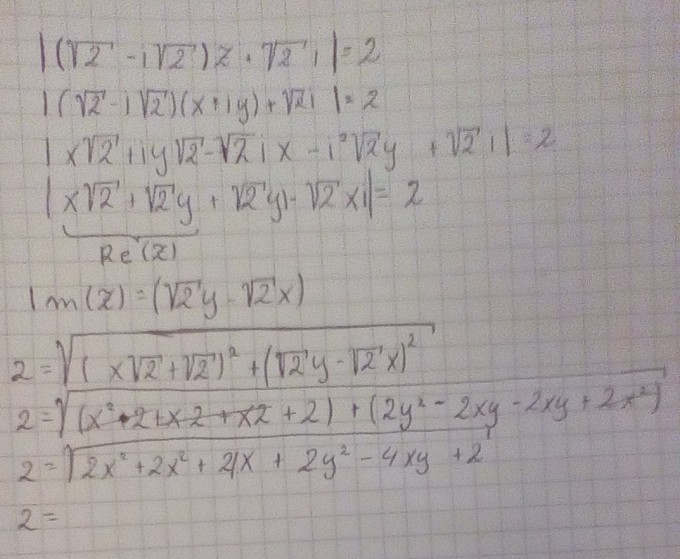 |(√2 - i√2)z + √2 i| = 2
|(√2 - i√2)(x + iy) + √2i| = 2
|x√2 + iy√2 - √2 i x - i²√2y + √2 i| = 2
|x√2 + √2y + √2yi - √2 xi| = 2
Re(z)
Im(z) = (√2y - √2x)
2 = √((x√2 + √2)² + (√2y - √2x)²)
2 = √((x²·2 + x2 + x2 + 2) + (2y² - 2xy - 2xy + 2x²))
2 = √(2x² + 2x² + 4x + 2y² - 4xy + 2)
2 =